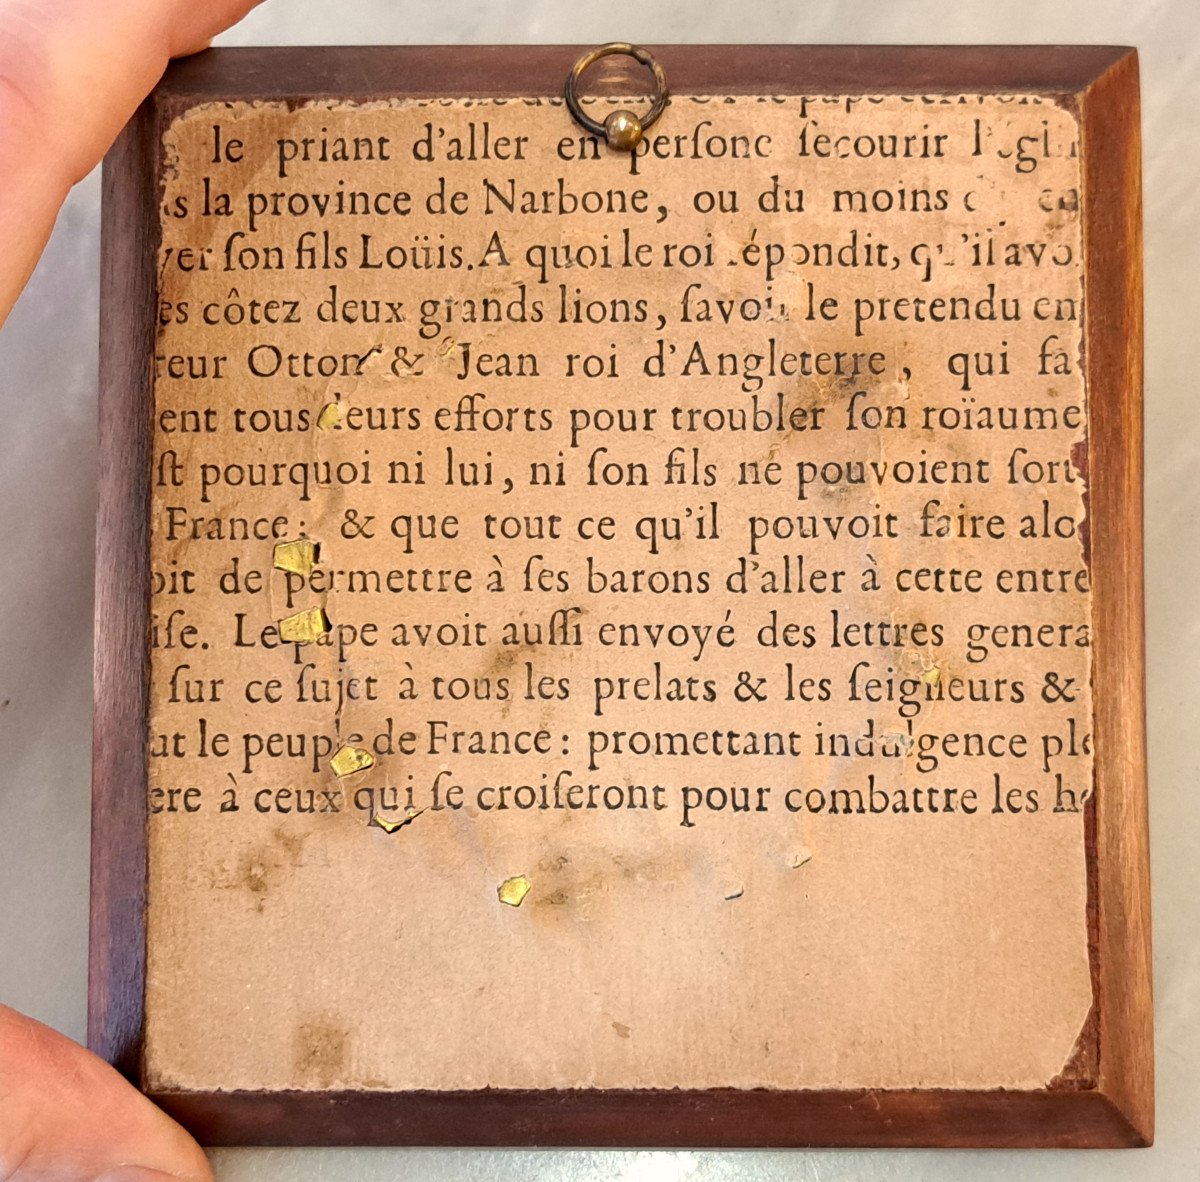 le pape
le priant d'aller en perſone ſecourir
la province de Narbone, ou du moins
ſon fils Loüis. A quoi le roi répondit, qu'il avo
es côtez deux grands lions, ſavoir le pretendu em
reur Otton & Jean roi d'Angleterre, qui fa
ent tous leurs efforts pour troubler ſon roïaume
ſt pourquoi ni lui, ni ſon fils ne pouvoient ſort
France: & que tout ce qu'il pouvoit faire alo
oit de permettre à ſes barons d'aller à cette entre
iſe. Le pape avoit auſſi envoyé des lettres genera
ſur ce ſujet à tous les prelats & les ſeigneurs &
ut le peuple de France: promettant indulgence ple
ere à ceux qui ſe croiſeront pour combattre les he